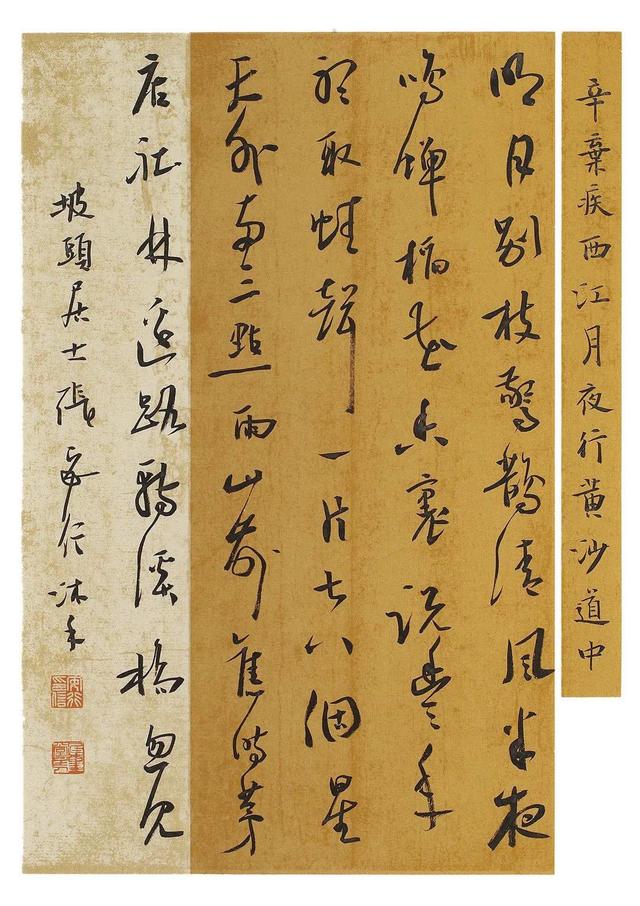 辛棄疾西江月夜行黄沙道中
明月别枝驚鵲清風半夜
鳴蟬稻花香裏説豐年
聽取蛙聲一片七八個星
天外兩三點雨山前舊時茅
店社林邊路轉溪橋忽見
坡頭居士張行沐手